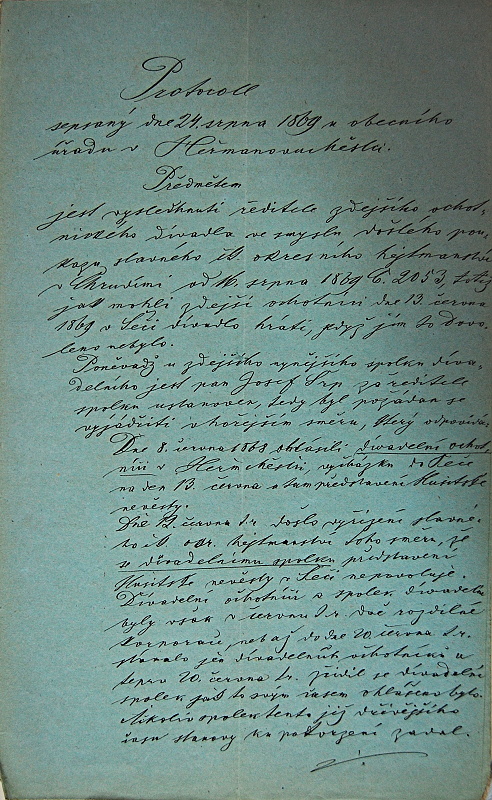 Protocoll
sepsaný dne 24. srpna 1869 u obecního
úřadu v Heřmanovuměstci.
Předmětem
jest vyslechnutí ředitele zdejšího ochot-
nického divadla ve smyslu došlého pou-
kazu slavného okresního hejtmanství
v Chrudimi od 16. srpna 1869 č. 2053,
jak mohli zdejší ochotníci dne 13. června
1869 v Seči divadlo hráti, když jim to dovo-
leno nebylo.
Poněvadž u zdejšího nynějšího spolku diva-
delního jest pan Josef Srp za ředitele
spolku ustanoven, tedy byl požádán se
vyjádřiti v hořejším směru, který odpovídá:
Dne 8. června 1868 ohlásili divadelní ochot-
níci v Heřm. městci, vycházku do Seče
na den 13. června a tam představení Husitské
nevěsty.
Dne 12. června t. r. došlo vyřízení slavné-
ho okr. hejtmanství toho směru, že
se divadelnímu spolku představení
Husitské nevěsty v Seči nepovoluje.
Divadelní ochotníci a spolek divadelní
byly však v červnu t. r. dvě rozdílné
korporace, neb až do dne 20. června t. r.
stávalo jen divadelních ochotníků a
teprv 20. června t. r. zřídil se divadelní
spolek jak to svým časem ohlášeno bylo.
Ačkoliv spolek tento již dřívějšího
času stanovy ku potvrzení zadal.